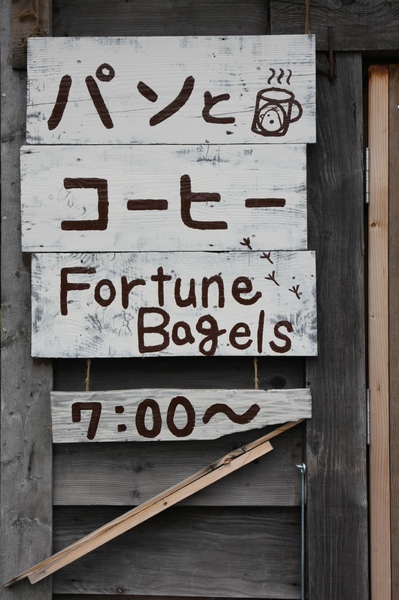 パンと
コーヒー
Fortune
Bagels
7:00〜